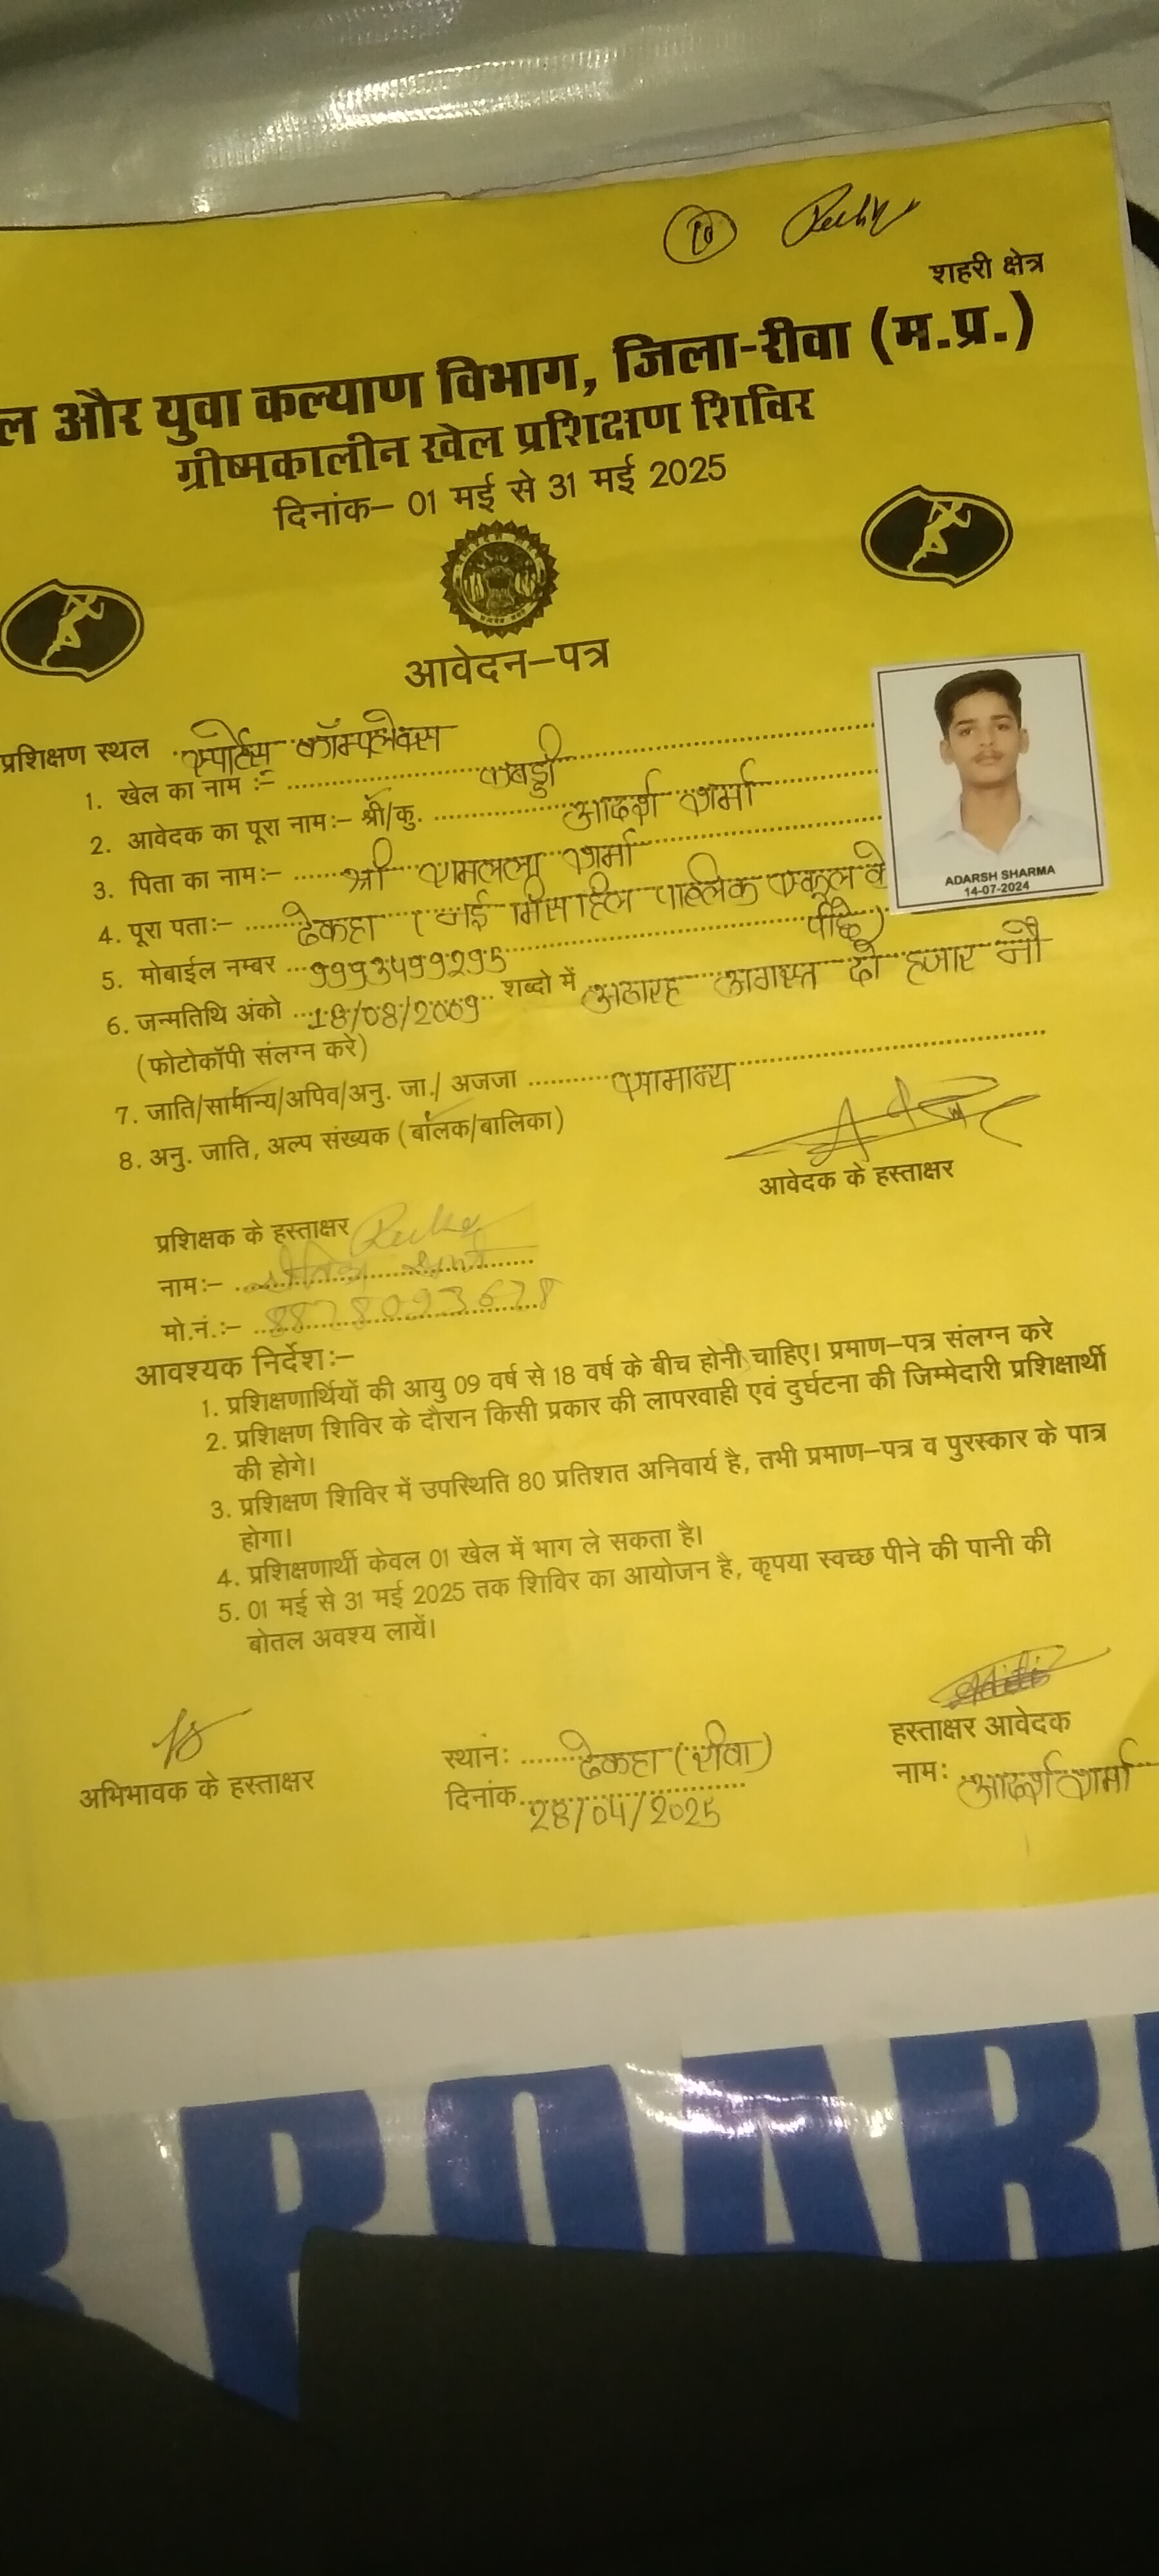 10
शहरी क्षेत्र
ल और युवा कल्याण विभाग, जिला-रीवा (म.प्र.)
ग्रीष्मकालीन खेल प्रशिक्षण शिविर
दिनांक– 01 मई से 31 मई 2025
आवेदन–पत्र
प्रशिक्षण स्थल स्पोर्टस् कॉम्पलेक्स
1. खेल का नाम :– कबड्डी
2. आवेदक का पूरा नाम:– श्री/कु. आदर्श शर्मा
3. पिता का नाम:– श्री रामलला शर्मा
4. पूरा पता:– ढेकहा ( पब्लिक स्कूल के
पीछे)
5. मोबाईल नम्बर 9993499295
6. जन्मतिथि अंको 18/08/2009 शब्दो में अठारह अगस्त दो हजार नौ
(फोटोकॉपी संलग्न करे)
7. जाति/सामान्य/अपिव/अनु. जा./ अजजा सामान्य
8. अनु. जाति, अल्प संख्यक (बालक/बालिका)
आवेदक के हस्ताक्षर
ADARSH SHARMA
14-07-2024
प्रशिक्षक के हस्ताक्षर
नाम:–
मो.नं.:– 8878093678
आवश्यक निर्देश:–
1. प्रशिक्षणार्थियों की आयु 09 वर्ष से 18 वर्ष के बीच होनी चाहिए। प्रमाण–पत्र संलग्न करे
2. प्रशिक्षण शिविर के दौरान किसी प्रकार की लापरवाही एवं दुर्घटना की जिम्मेदारी प्रशिक्षार्थी
की होगे।
3. प्रशिक्षण शिविर में उपस्थिति 80 प्रतिशत अनिवार्य है, तभी प्रमाण–पत्र व पुरस्कार के पात्र
होगा।
4. प्रशिक्षणार्थी केवल 01 खेल में भाग ले सकता है।
5. 01 मई से 31 मई 2025 तक शिविर का आयोजन है, कृपया स्वच्छ पीने की पानी की
बोतल अवश्य लायें।
अभिभावक के हस्ताक्षर
स्थान: ढेकहा (रीवा)
दिनांक 28/04/2025
हस्ताक्षर आवेदक
नाम: आदर्श शर्मा
BOAR